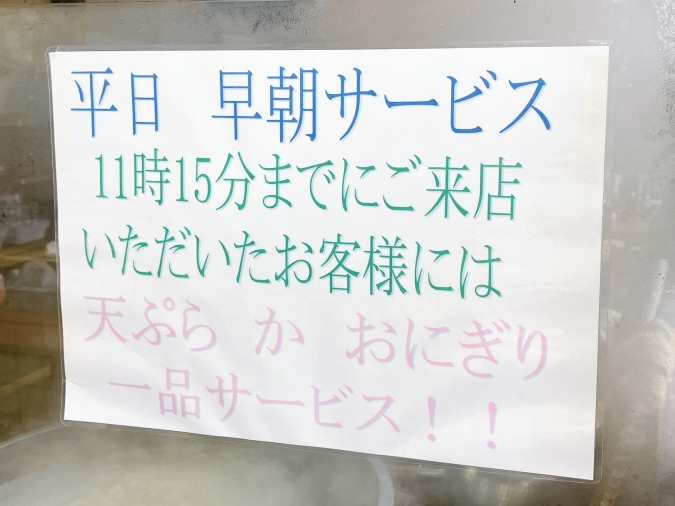 平日　早朝サービス
11時15分までにご来店
いただいたお客様には
天ぷら　か　おにぎり
一品サービス！！